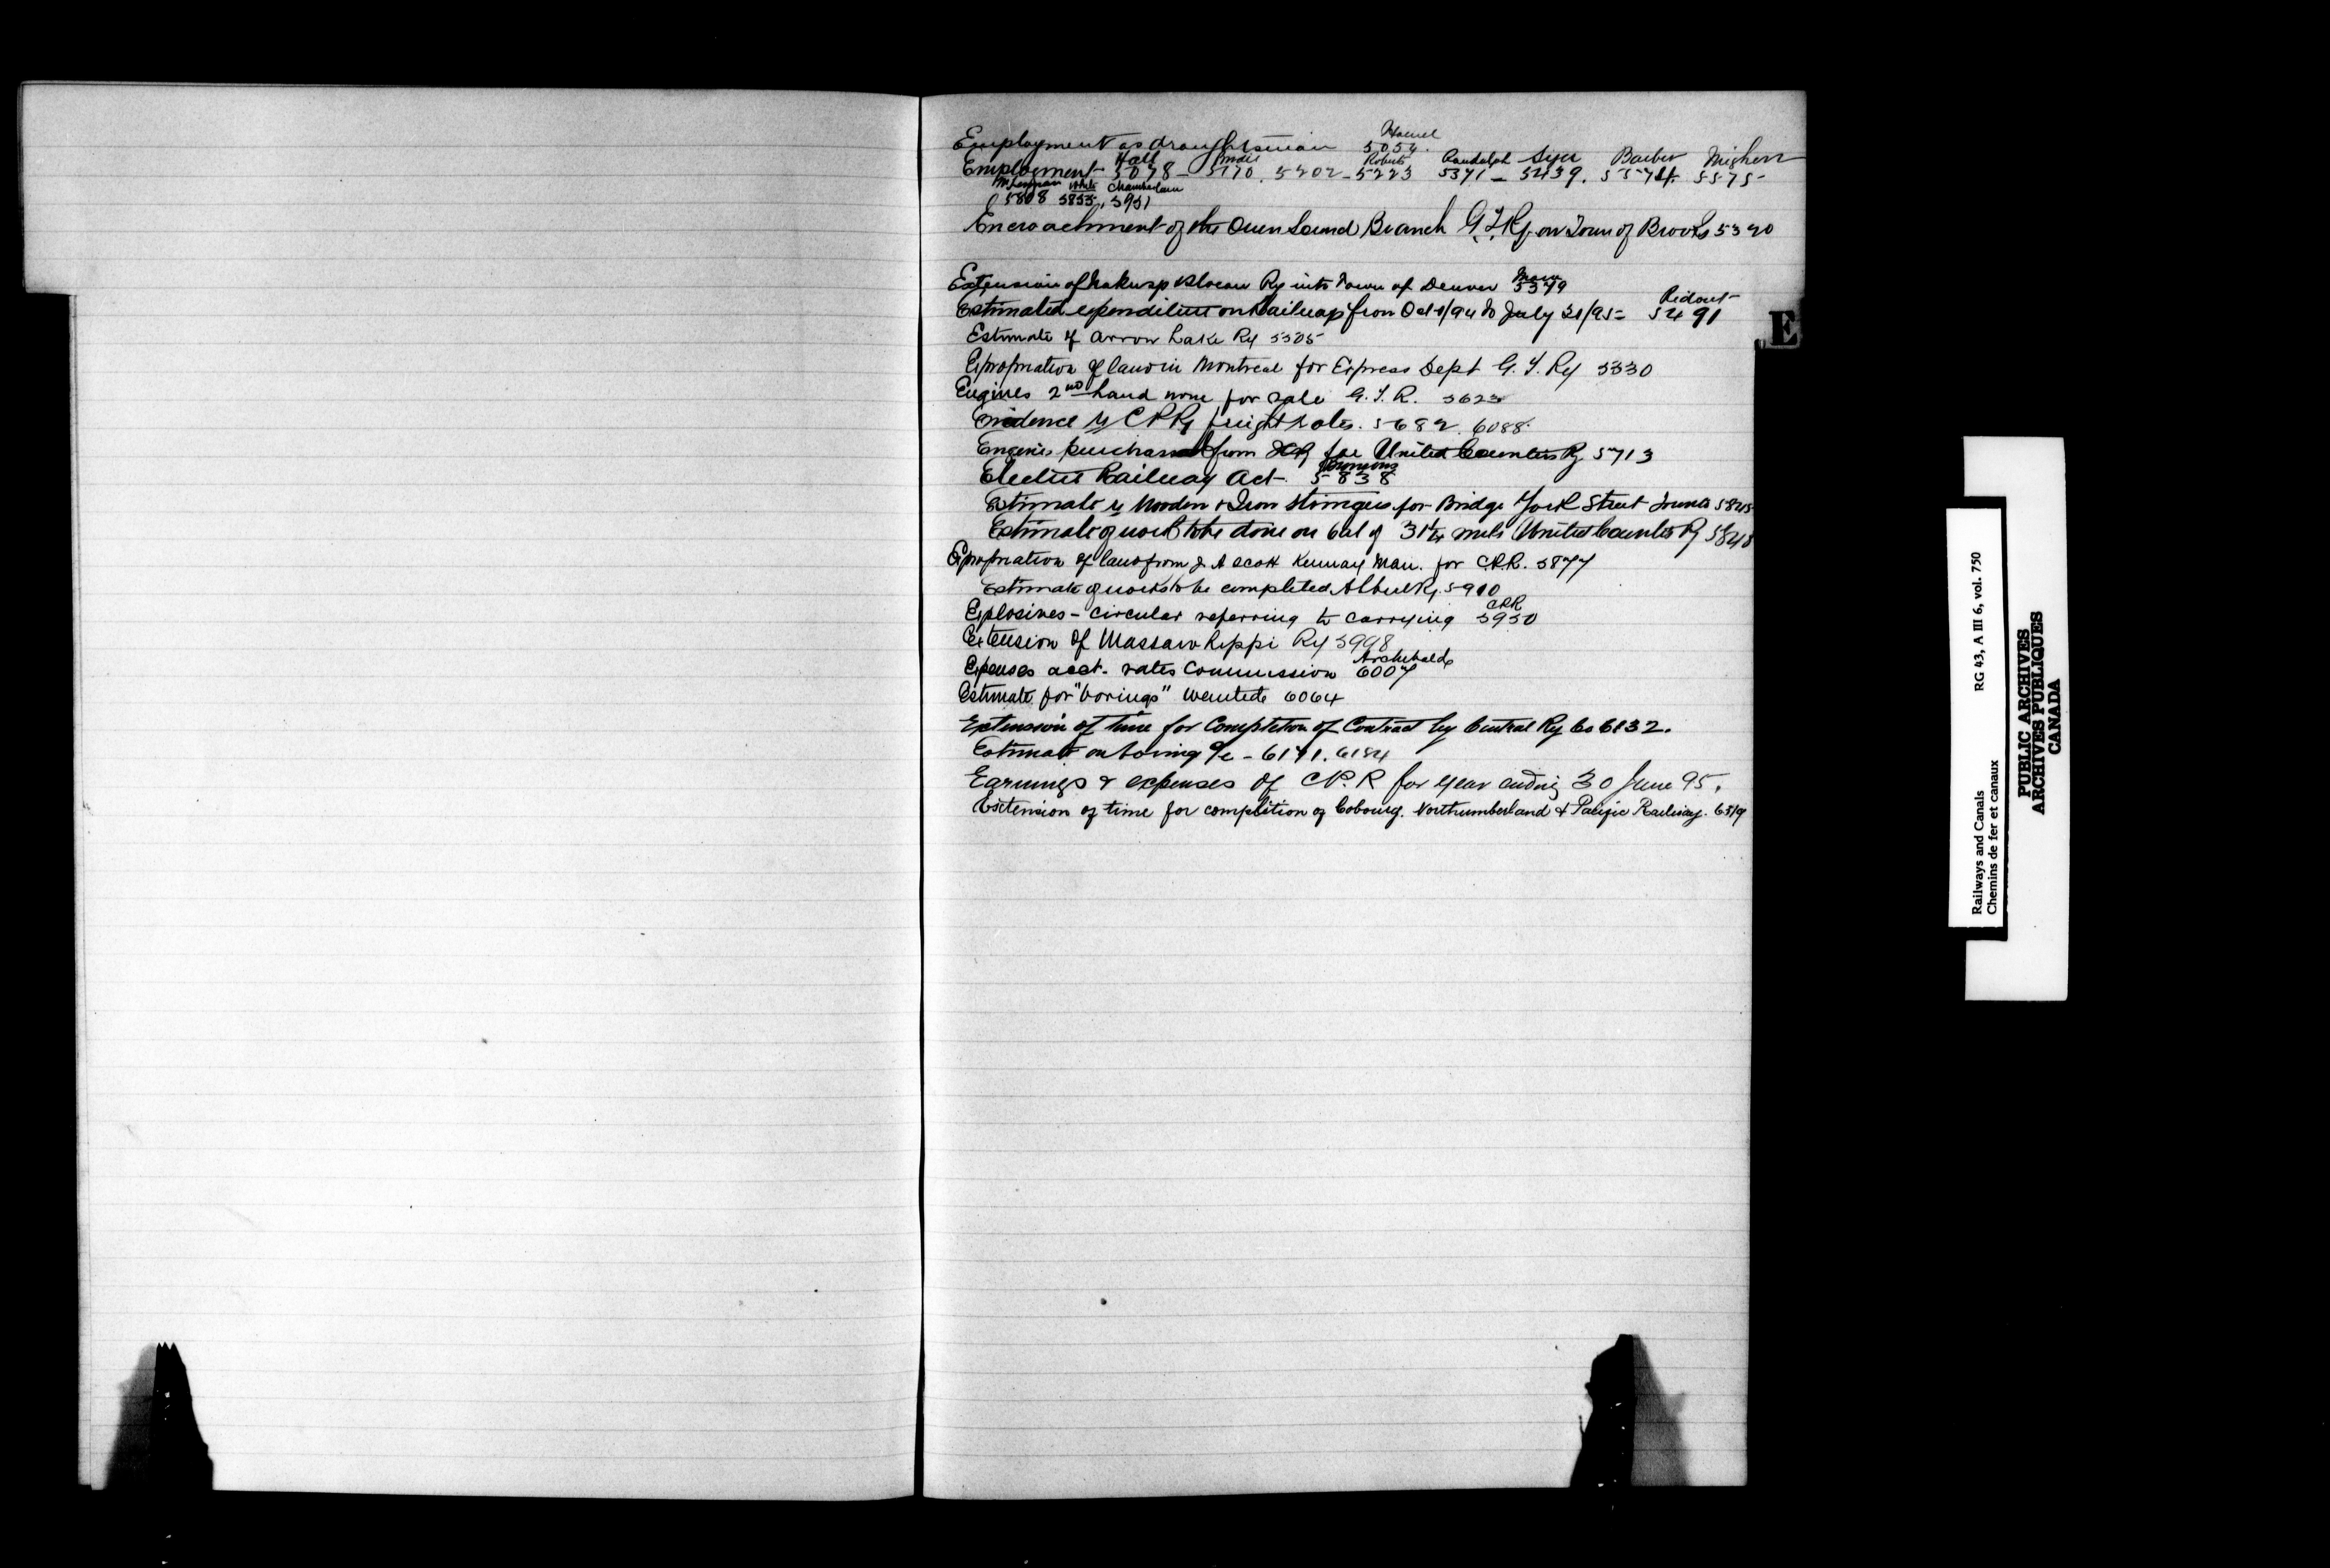 Hamel
Employment as draughtsman 5054.
Hall Roberts Randolph Syer Barber
Employment 5078 - 5170. 5202 - 5223 5371 - 5439. 5574. 5575
White Chamberlain
5808 5853, 5951
Encroachment of the Owen Sound Branch G.T.Ry. on Town of Brooks 5390
Extension of Nakusp & Slocan Ry into Town of Denver 5379
Ridout
Estimated expenditure on Railways from Oct 1/94 to July 31/95 = 5491
Estimate of Arrow Lake Ry 5505
Expropriation of land in Montreal for Express Dept G. T. Ry 5530
Engines 2nd hand none for sale G. T. R. 5623
Evidence re CPRy freight rates. 5682. 6088.
Engines purchased from ICR for United Counties Ry 5713
Bronsons
Electric Railway Act. 5838
Estimate re Wooden & Iron Stringers for Bridge York Street 5845
Estimate of work to be done on bal of 31 1/4 mls United Counties Ry 5848
Expropriation of land from J. A Scott Kenmay Man. for C.P.R. 5877
Estimate of works to be completed Albert Ry. 5910
CPR
Explosives - circular referring to carrying 5950
Extension of Massawippi Ry 5998
Archibald
Expenses acct. rates Commission 6007
Estimate for "borings" wanted 6064
Extension of time for Completion of Contract by Central Ry Co 6132.
Estimate on boring &c - 6171. 6184
Earnings & expenses of C.P.R for year ending 30 June 95.
Extension of time for completion of Cobourg. Northumberland & Pacific Railway. 6519
E
Railways and Canals RG 43, A III 6, vol. 750
Chemins de fer et canaux
PUBLIC ARCHIVES
ARCHIVES PUBLIQUES
CANADA